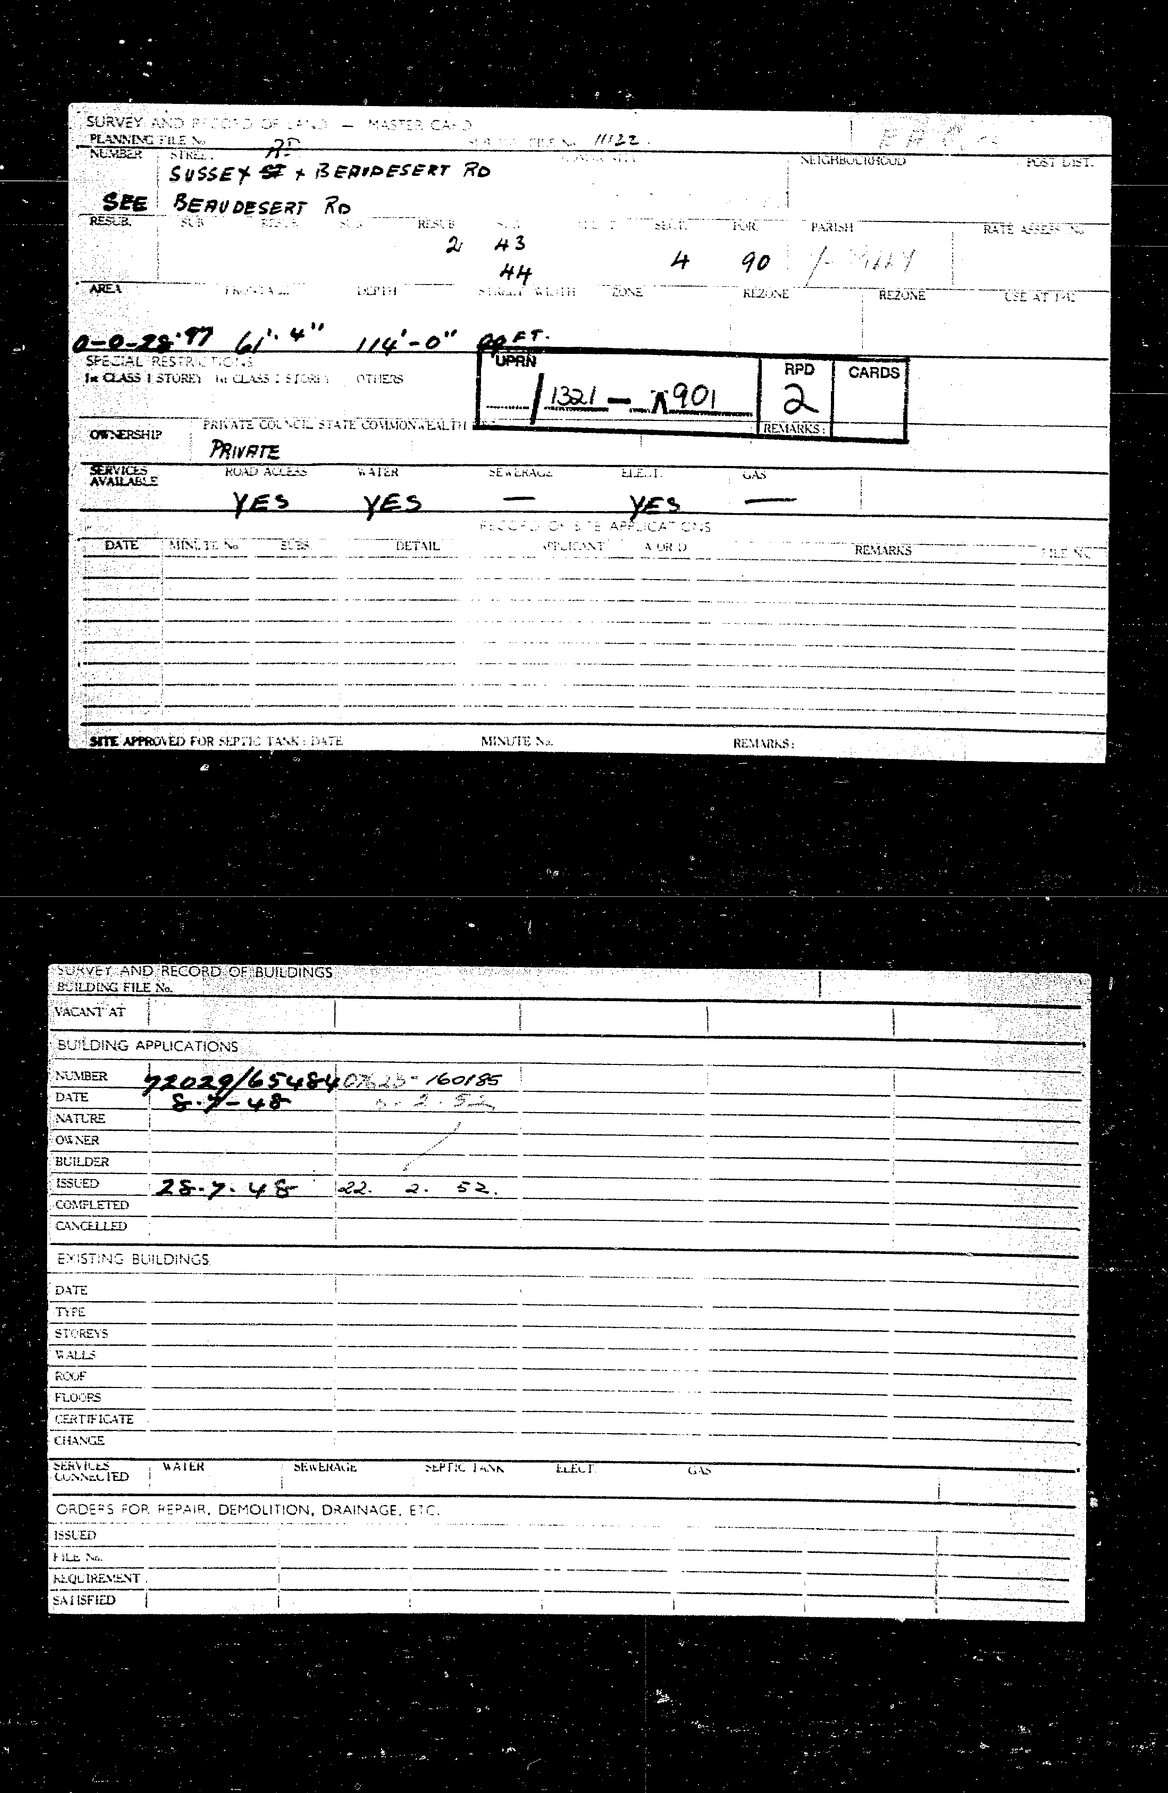 SURVEY AND RECORD OF LAND — MASTER CARD
PLANNING FILE No. 11122
NUMBER STREET NEIGHBOURHOOD POST DIST.
SUSSEX ST + BEAUDESERT RD
SEE BEAUDESERT RD
RESUB. SUB RESUB. SUB RESUB SUB SECT. POR. PARISH RATE ASSESS No
2 43 4 90
44
AREA FRONTAGE DEPTH STREET WIDTH ZONE REZONE REZONE USE AT
0-0-28.97 61'. 4" 114'-0" FT.
SPECIAL RESTRICTIONS
1st CLASS 1 STOREY 1st CLASS 2 STOREY OTHERS
UPRN RPD CARDS
/ 1321 — 901 2
REMARKS:
OWNERSHIP PRIVATE COUNCIL STATE COMMONWEALTH
PRIVATE
SERVICES AVAILABLE ROAD ACCESS WATER SEWERAGE ELECT. GAS
YES YES — YES —
RECORD OF SITE APPLICATIONS
DATE MINUTE No SUBS. DETAIL APPLICANT A OR D REMARKS FILE No
SITE APPROVED FOR SEPTIC TANK: DATE MINUTE No. REMARKS:
SURVEY AND RECORD OF BUILDINGS
BUILDING FILE No.
VACANT AT
BUILDING APPLICATIONS
NUMBER 72029/65484 160185
DATE 8.7-48 2.52
NATURE
OWNER
BUILDER
ISSUED 28.7.48 22. 2. 52.
COMPLETED
CANCELLED
EXISTING BUILDINGS
DATE
TYPE
STOREYS
WALLS
ROOF
FLOORS
CERTIFICATE
CHANGE
SERVICES CONNECTED WATER SEWERAGE SEPTIC TANK ELECT. GAS
ORDERS FOR REPAIR, DEMOLITION, DRAINAGE, ETC.
ISSUED
FILE No.
REQUIREMENT
SATISFIED